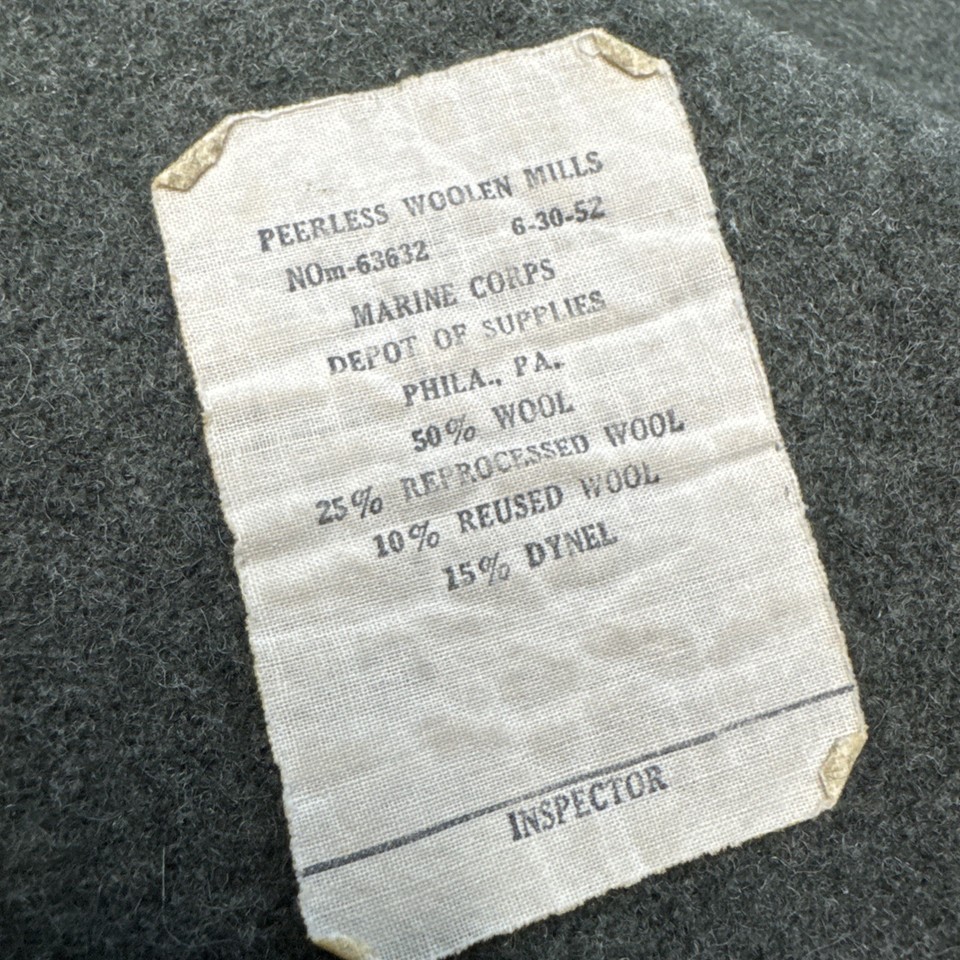 PEERLESS WOOLEN MILLS
NOm-63632 6-30-52
MARINE CORPS
DEPOT OF SUPPLIES
PHILA., PA.
50% WOOL
25% REPROCESSED WOOL
10% REUSED WOOL
15% DYNEL
INSPECTOR